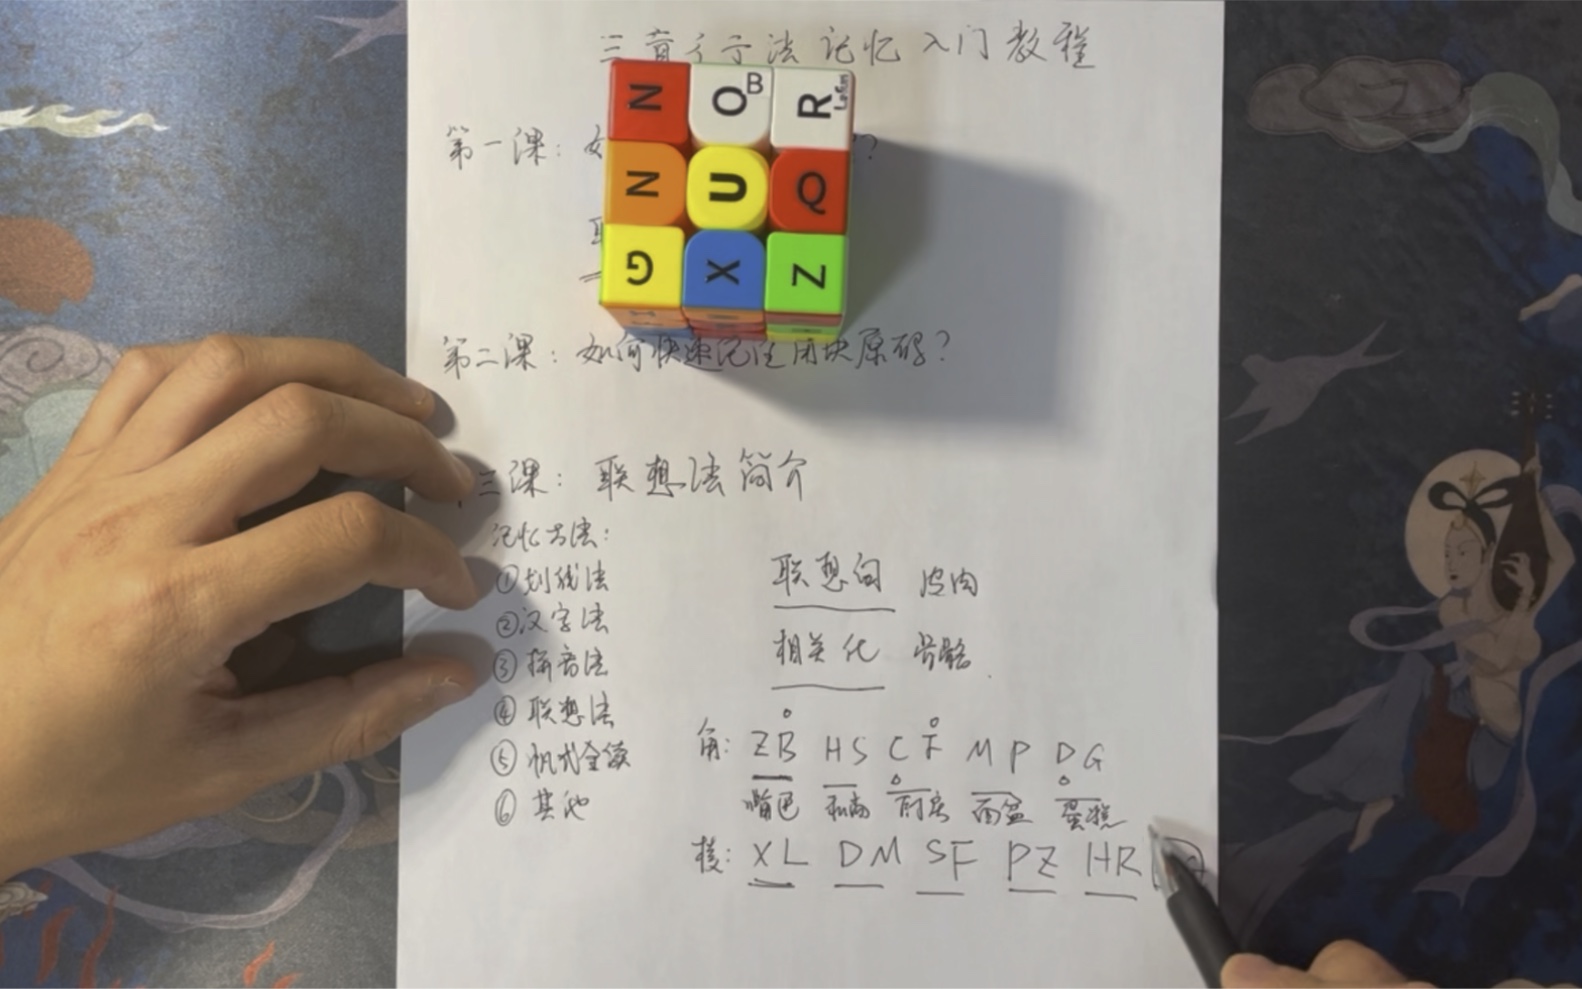 三盲 法 记忆入门教程
N O B R
第一课: ?
N U Q
G X Z
第二课: 如何快速记住 块原码?
三课: 联想法简介
记忆方法:
①划线法
②汉字法
③拼音法
④联想法
⑤
⑥其他
联想句 皮肉
相关化 骨骼
角: ZB HS CF MP DG
嘴巴 和尚 厨房 面盆 蛋糕
棱: XL DM SF PZ HR